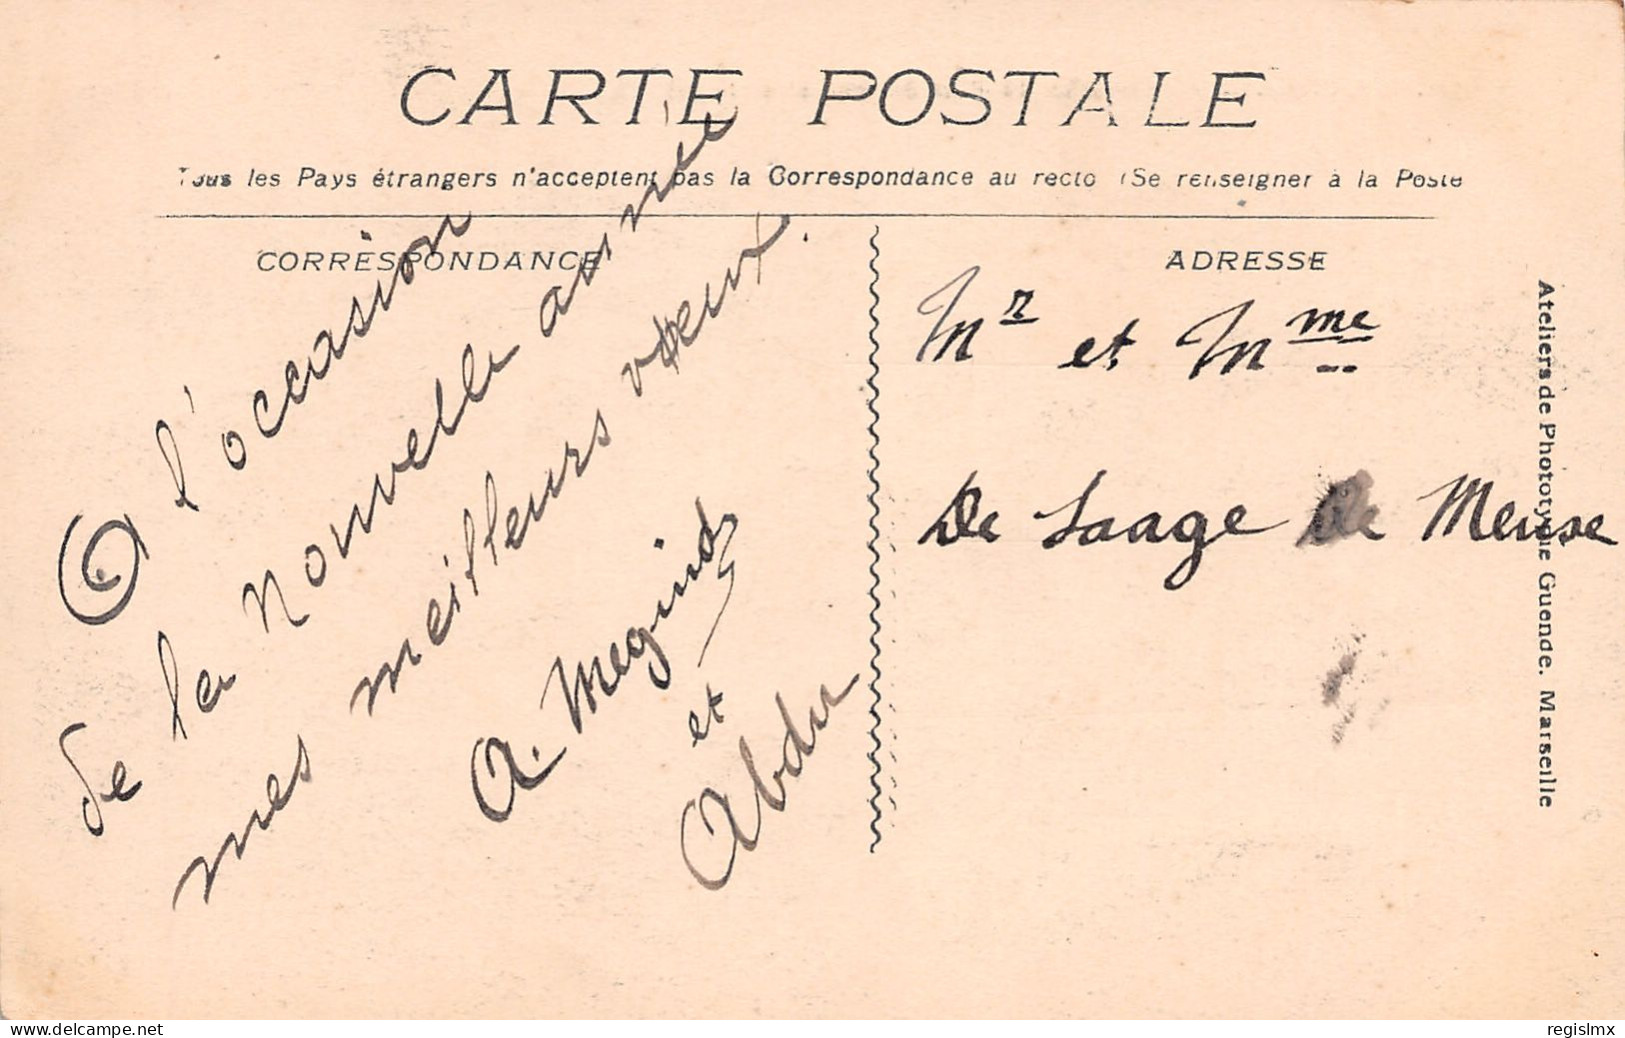 CARTE POSTALE
Tous les Pays étrangers n'acceptent pas la Correspondance au recto (Se renseigner à la Poste
CORRESPONDANCE
A l'occasion
de la nouvelle année
mes meilleurs vœux.
A. Megind
et
Abdu
ADRESSE
Mr et Mme
De Saage De Meuse
Ateliers de Phototypie Guende. Marseille
delcampe.net
regislmx